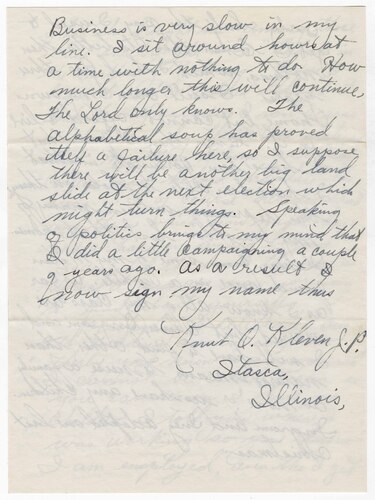 Business is very slow in my
line. I sit around hours at
a time with nothing to do How
much longer this will continue,
the Lord only knows. The
alphabetical soup has proved
itself a failure here, so I suppose
there will be another big land
slide at the next election which
might turn things. Speaking
of politics brings to my mind that
I did a little campaigning a couple
of years ago. As a result I
now sign my name thus
Knut O. Kleven J.P.
Itasca,
Illinois,